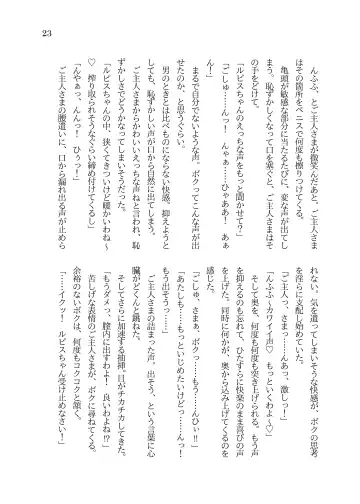 23
んふふ、とご主人さまが微笑んだあと、ご主人さま
はその箇所をペニスで何度も擦りつけてくる。
亀頭が敏感な部分に当たるたびに、変な声が出てし
まう。恥ずかしくなって口を塞ぐと、ご主人さまはそ
の手をどけて。
「ルビスちゃんのえっちな声をもっと聞かせて？」
「ごしゅ……んっ！　んぁ……ひゃああ！　あぁ
ん！」
まるで自分でないような声。ボクってこんな声が出
せたのか、と思うぐらい。
男のときとは比べものにならない快感。抑えようと
しても、恥ずかしい声が口から自然に出てしまう。
ご主人さまからかわいいえっちな声ねと言われ、恥
ずかしさでどうかなってしまいそうだった。
「ルビスちゃんの中、狭くてきついけど暖かいわね～
♡　搾り取られそうなぐらい締め付けてくるし」
「んやぁっ、んんっ！　ひぅっ！」
ご主人さまの腰遣いに、口から漏れ出る声が止めら
れない。気を遣ってしまいそうな快感が、ボクの思考
を淫らに支配し始めていた。
「ご主人っ、さまっ……んあっ、激しっ！」
「んふふ～カワイイ声♡　もっといくわよ～♡」
そして奥を、何度も何度も突き上げられる。もう声
を抑えるのも忘れて、ひたすらに快楽のまま喜びの声
を上げた。同時に何かが、奥から込み上げてくるのを
感じた。
「ごしゅ、さまぁ、ボクっ……もう……んひぃ‼」
「あたしも……もっといじめたいけどっ……んっ！
もう出そうっ……」
ご主人さまの詰まった声、出そう、という言葉に心
臓がどくんと跳ねた。
そしてさらに加速する抽挿。目がチカチカしてきた。
「もうダメっ、膣内に出すわよ！　良いわよね⁉」
苦しげな表情のご主人さまが、ボクに尋ねてくる。
余裕のないボクは、何度もコクコクと頷く。
「……イクッ！　ルビスちゃん受け止めなさい！」